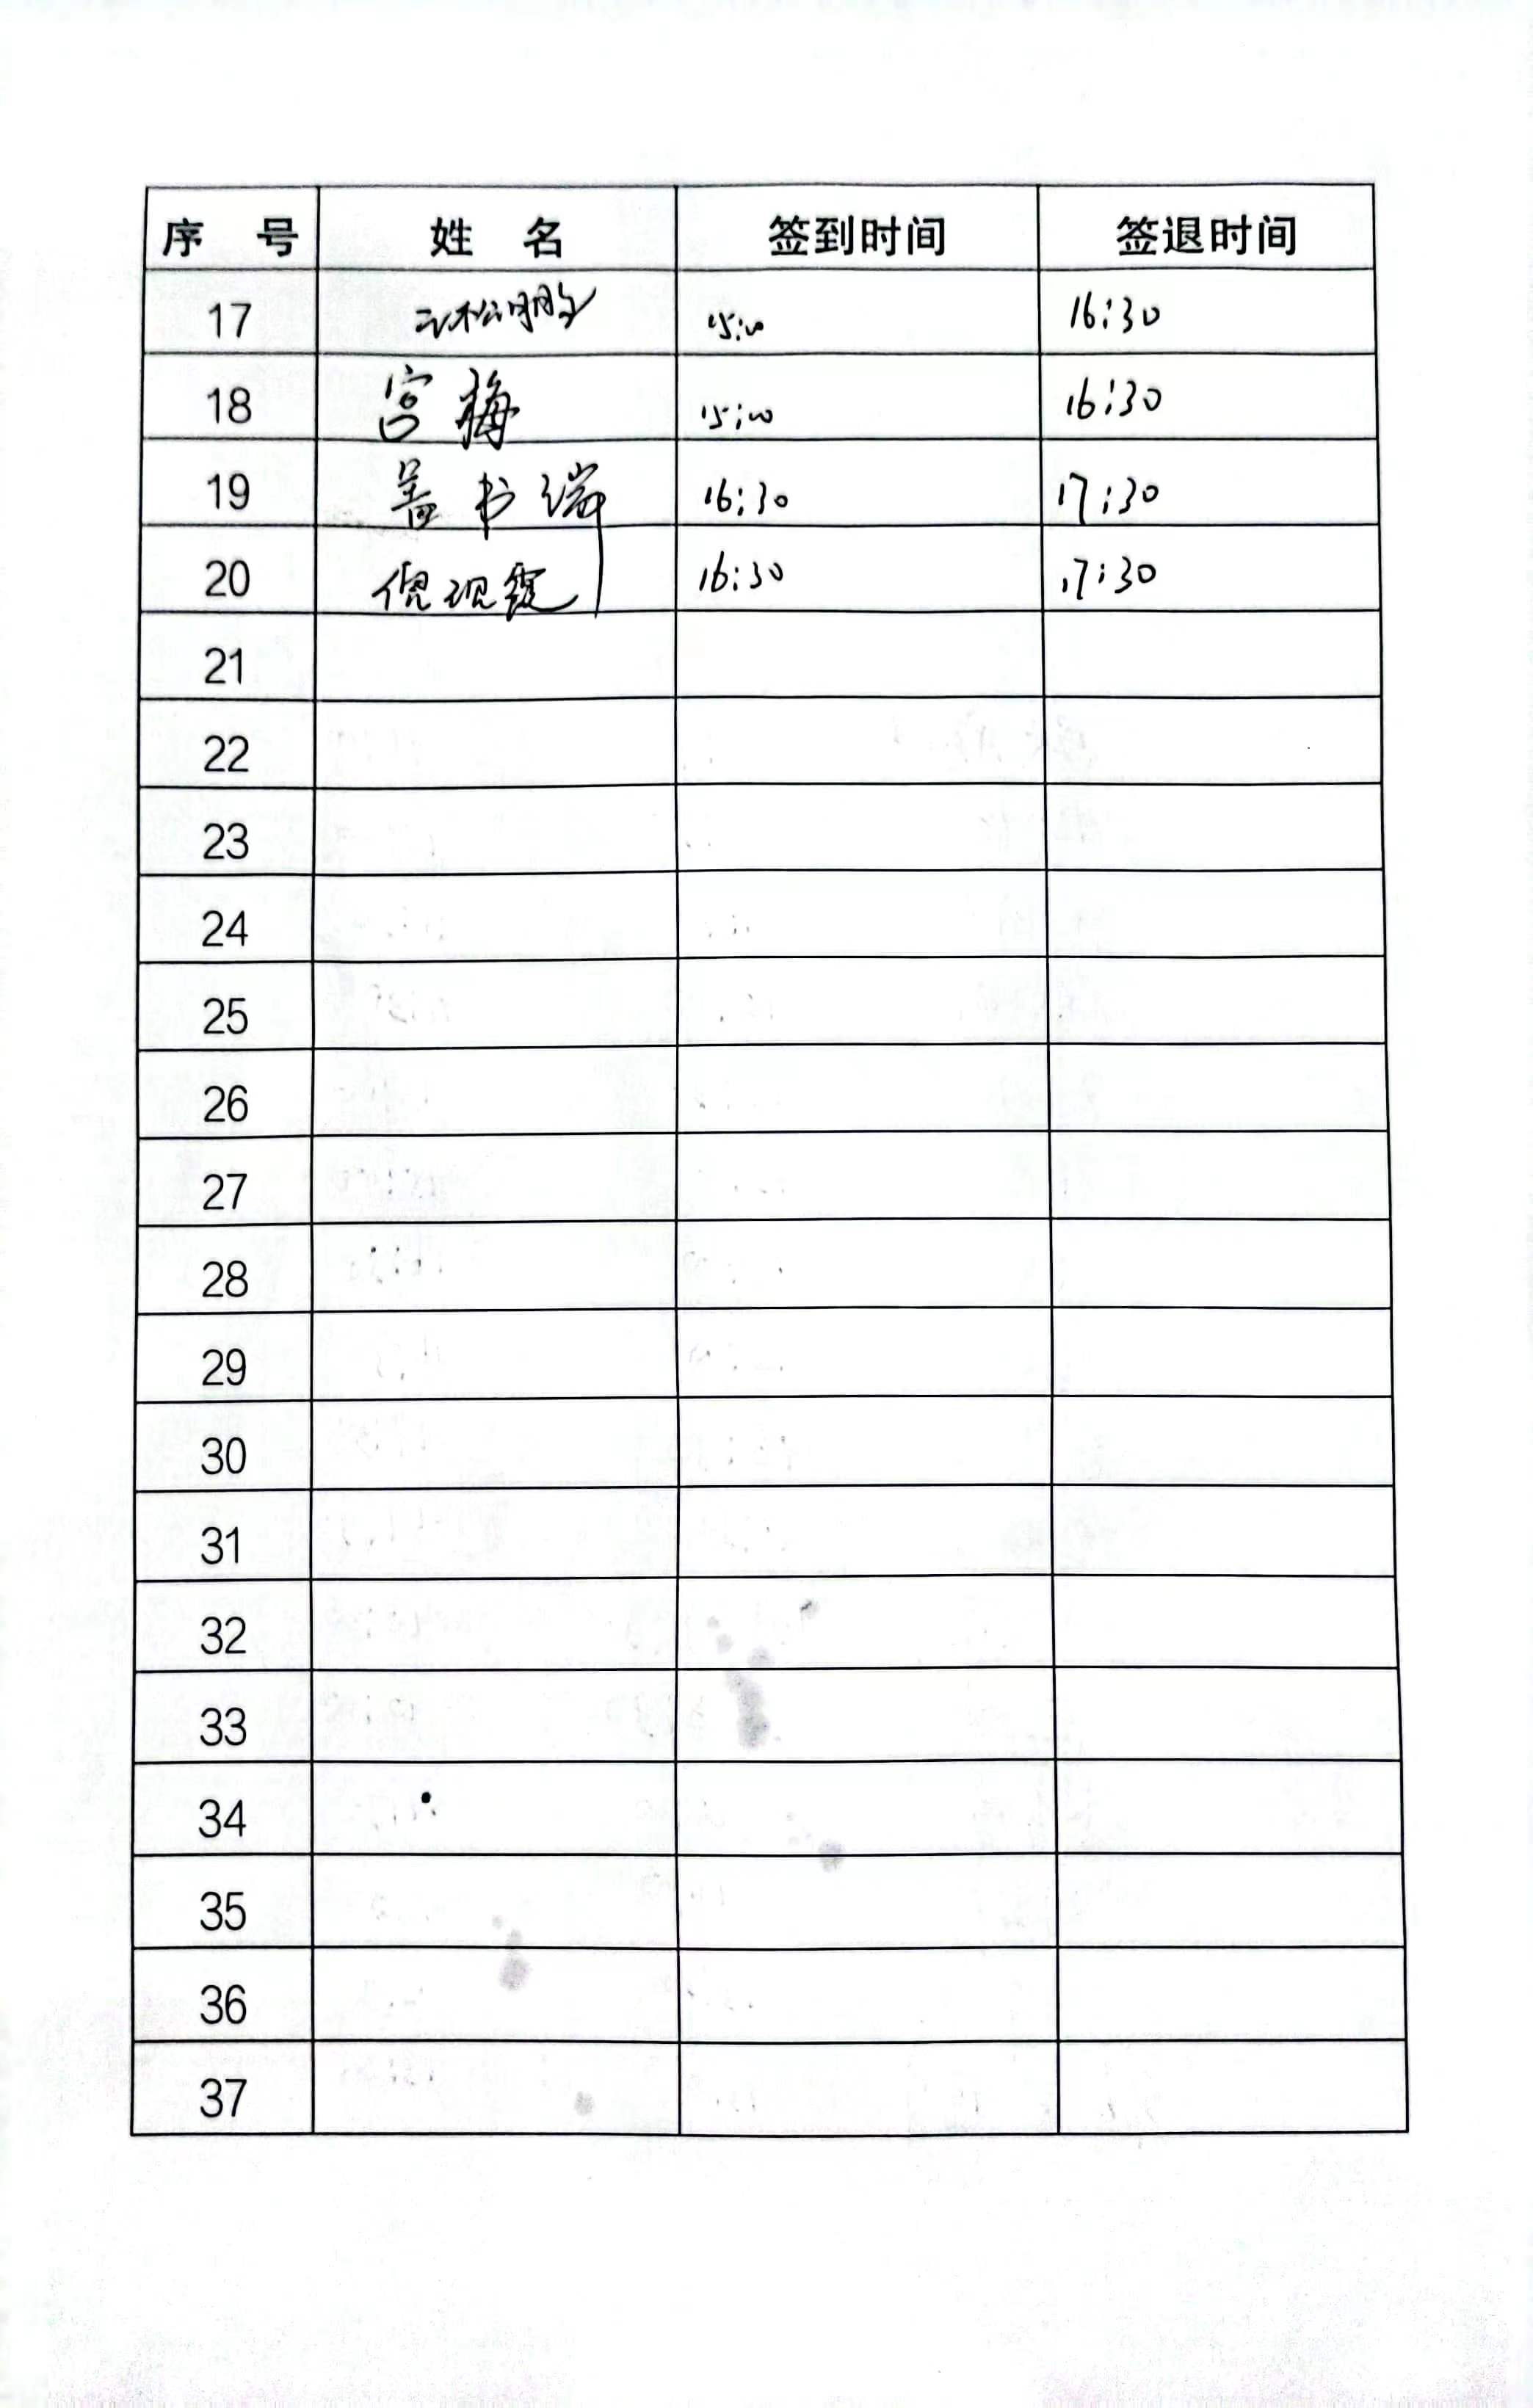 序 号 姓 名 签到时间 签退时间
17 15:00 16:30
18 宫梅 15:00 16:30
19 盖书瑞 16:30 17:30
20 倪砚霞 16:30 17:30
21
22
23
24
25
26
27
28
29
30
31
32
33
34
35
36
37